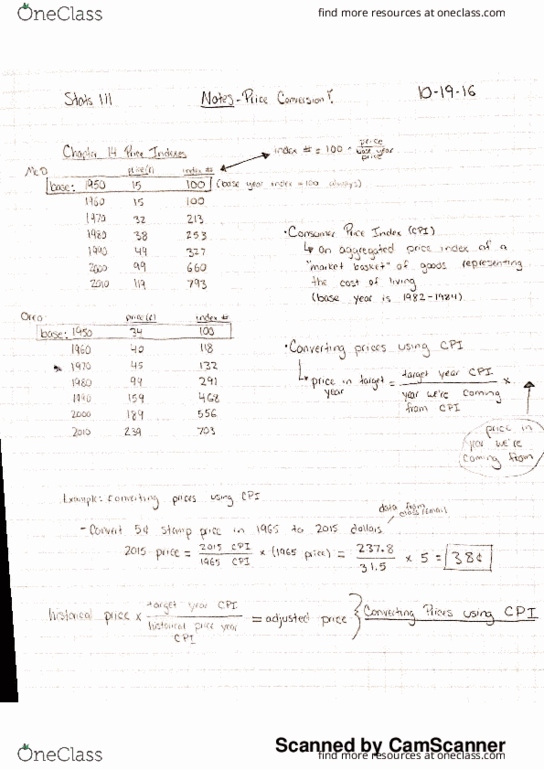 OneClass
find more resources at oneclass.com
Stats 111
Notes - Price Conversion!
10-19-16
Chapter 14 Price Indexes
index # = 100 · price / base year price
McD
price(¢) index #
base: 1950 15 100 (base year index = 100 always)
1960 15 100
1970 32 213
1980 38 253
1990 49 327
2000 99 660
2010 119 793
· Consumer Price Index (CPI)
↳ an aggregated price index of a
"market basket" of goods representing
the cost of living
(base year is 1982-1984)
Oreo
price(¢) index #
base: 1950 34 100
1960 40 118
1970 45 132
1980 99 291
1990 159 468
2000 189 556
2010 239 703
· Converting prices using CPI
↳ price in target year = target year CPI / year we're coming from CPI ×
price in
year we're
coming from
Example: converting prices using CPI
data from
class/email
- Convert 5¢ stamp price in 1965 to 2015 dollars
2015 price = 2015 CPI / 1965 CPI × (1965 price) = 237.8 / 31.5 × 5 = 38¢
historical price × target year CPI / historical price year CPI = adjusted price } Converting Prices using CPI
Scanned by CamScanner
OneClass
find more resources at oneclass.com